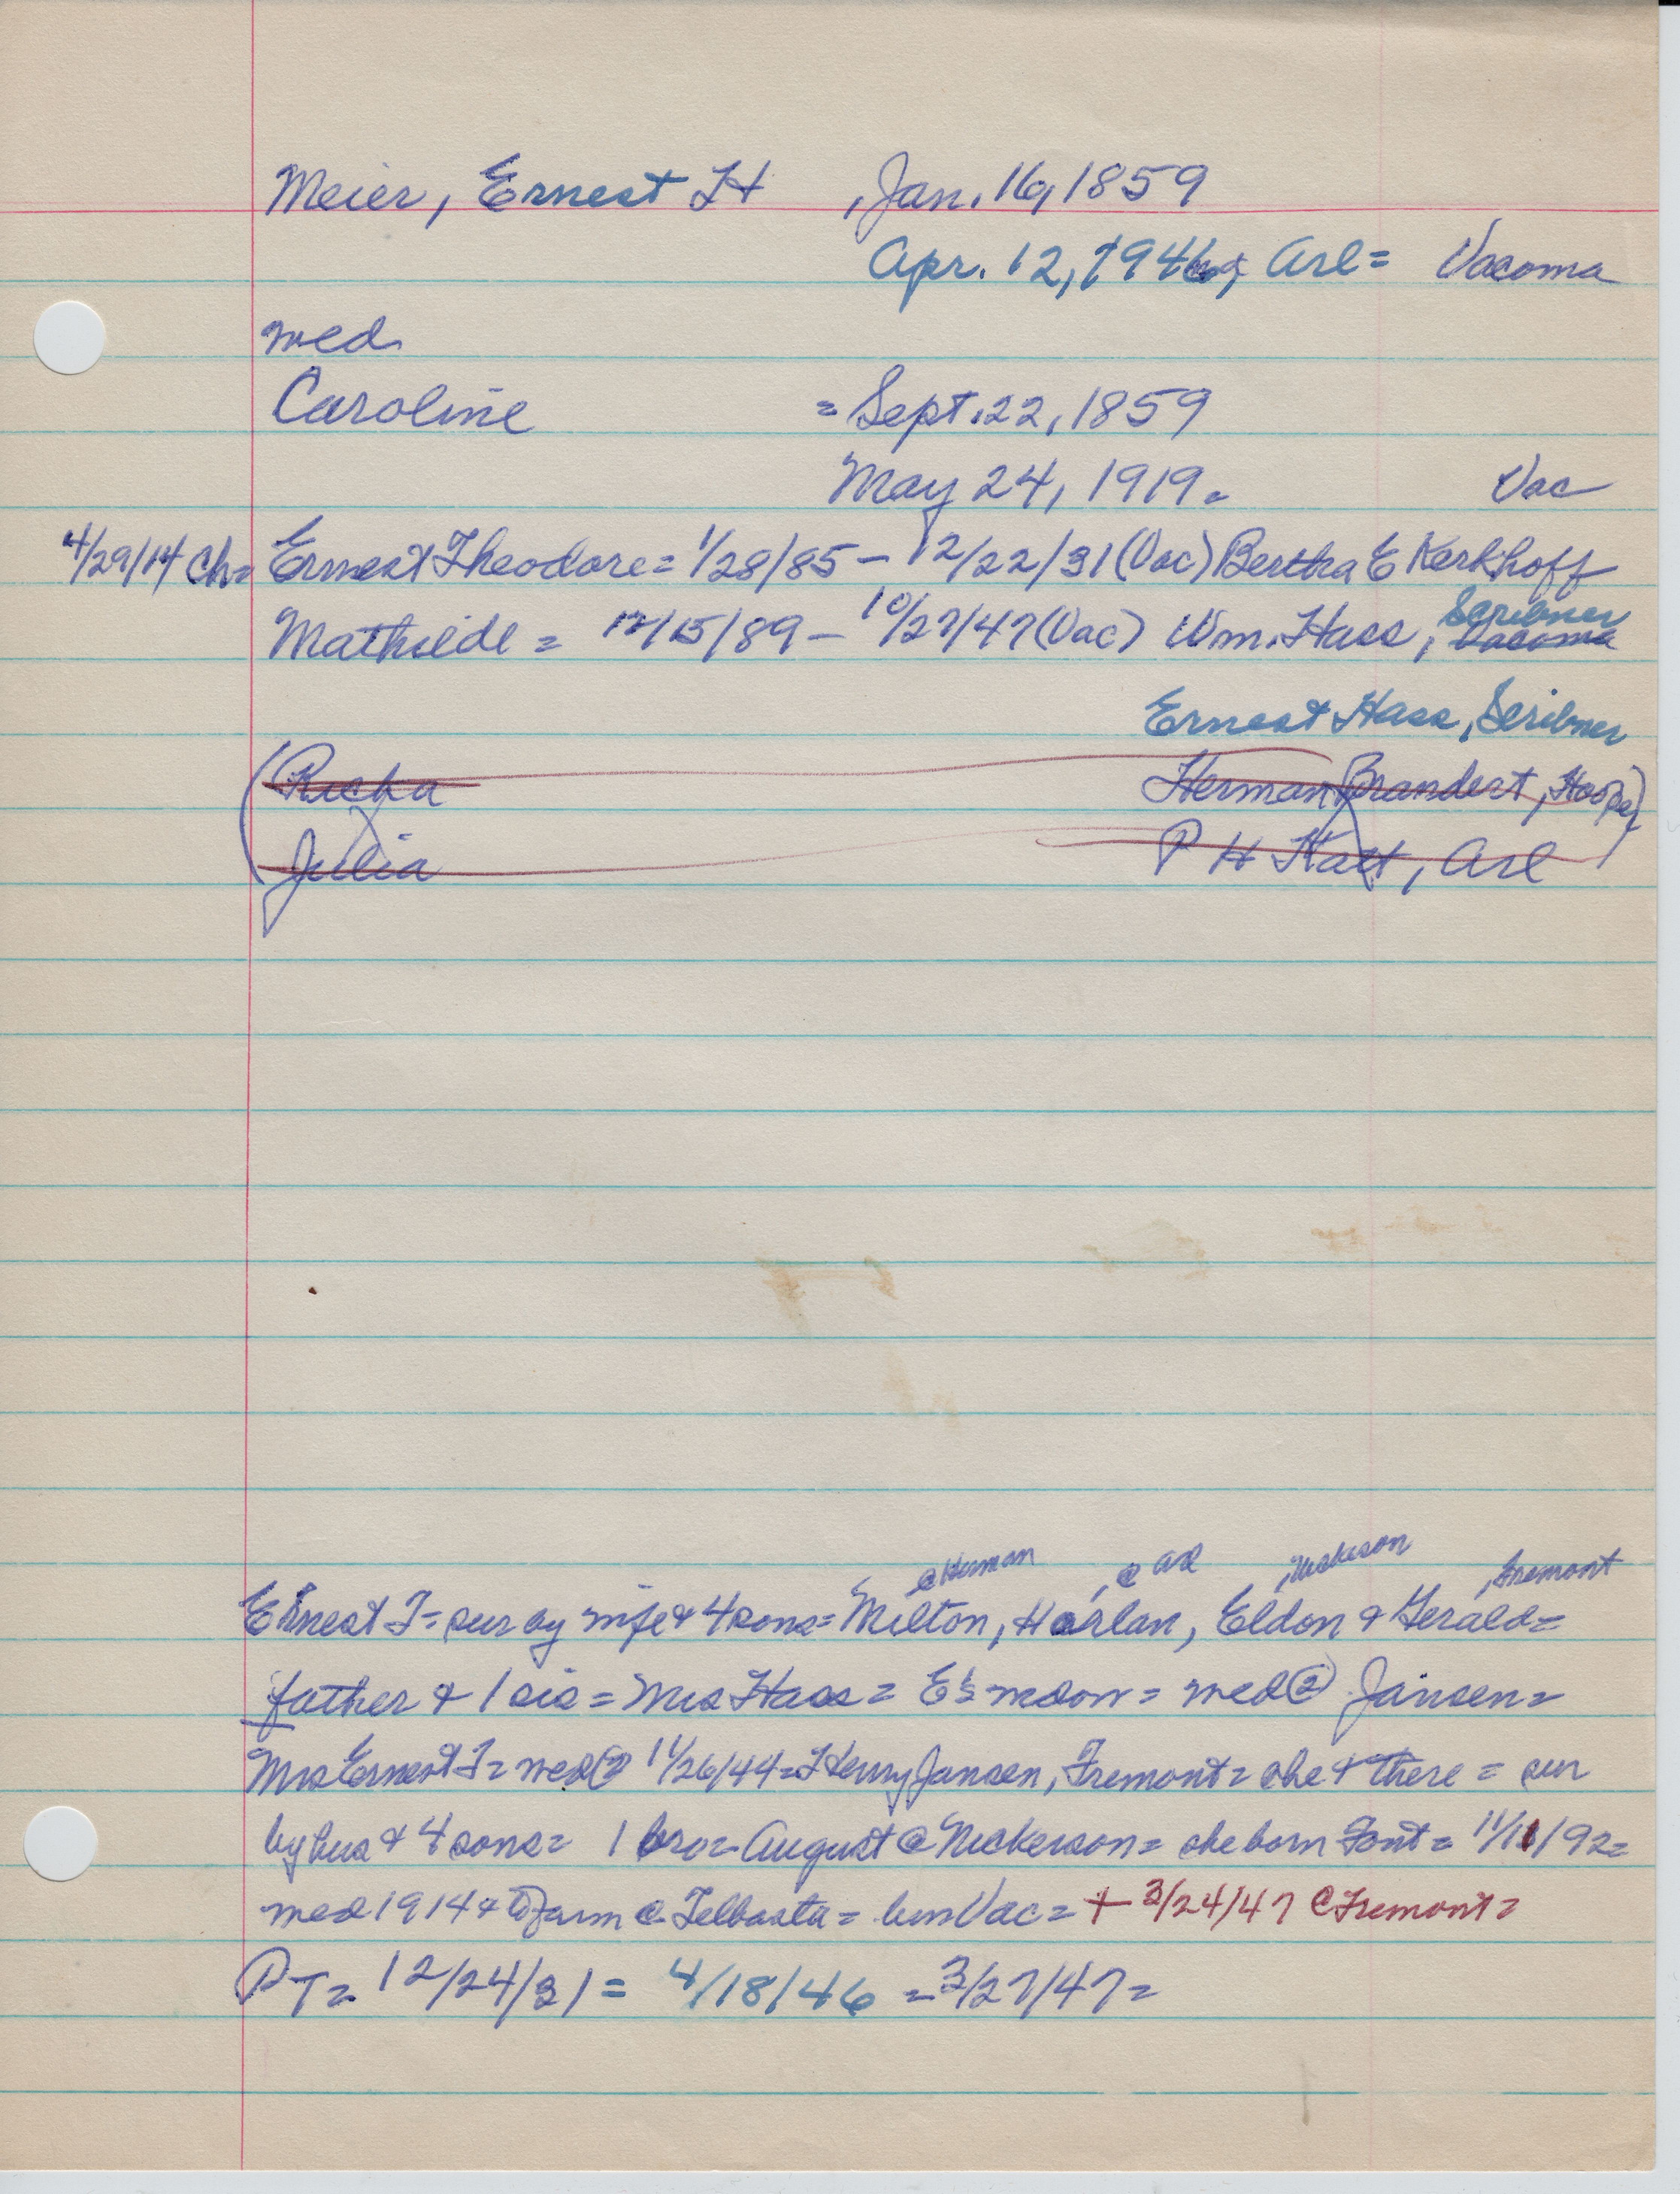 Meier, Ernest H , Jan. 16, 1859
Apr. 12, 1946, Arl = Vacoma
med
Caroline = Sept. 22, 1859
May 24, 1919 = Vac
4/29/14 Ch = Ernest Theodore = 1/28/85 – 12/22/31 (Vac) Bertha E Kerkhoff
Scribner
Mathilde = 12/15/89 – 10/27/47 (Vac) Wm. Hass, Vacoma
Ernest Hass, Scribner
(Richa Herman Brandert, Hooper)
Julia P H Katt, Arl
@ Herman , @ Arl , Nickerson , Fremont
Ernest T = sur by wife & 4 sons = Milton, Harlan, Eldon & Gerald =
father & 1 sis = Mrs Hass = E's = med @ Jansen =
Mrs Ernest T = med @ 11/26/44 = Henry Jansen, Fremont = she & there = sur
by hus & 4 sons = 1 bro = August @ Nickerson = she born Font = 11/11/92 =
med 1914 & to farm @ Telbasta = Vac = + 3/24/47 @ Fremont =
PT = 12/24/31 = 4/18/46 = 3/27/47 =